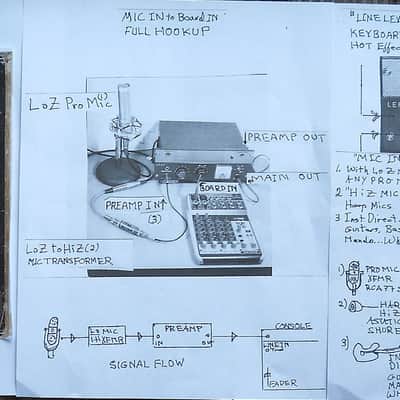 MIC IN to Board IN
FULL HOOKUP
LoZ Pro Mic (1)
PREAMP OUT
MAIN OUT
BOARD IN
PREAMP IN
(3)
LoZ to HiZ (2)
MIC TRANSFORMER
LO MIC
HI XFMR
PREAMP
IN
CONSOLE
LINE IN
FADER
SIGNAL FLOW
"LINE LEV
KEYBOAR
HOT Effec
LE
"MIC IN
1. With LoZ M
ANY PRO M
2 "HiZ MIC
Harp Mics
3 Inst Direct.
Guitars, Bas
Mando...
1)
PRO MIC
XFMR
2)
HAR
HiZ
SHURE
3)
IN
DI
MA